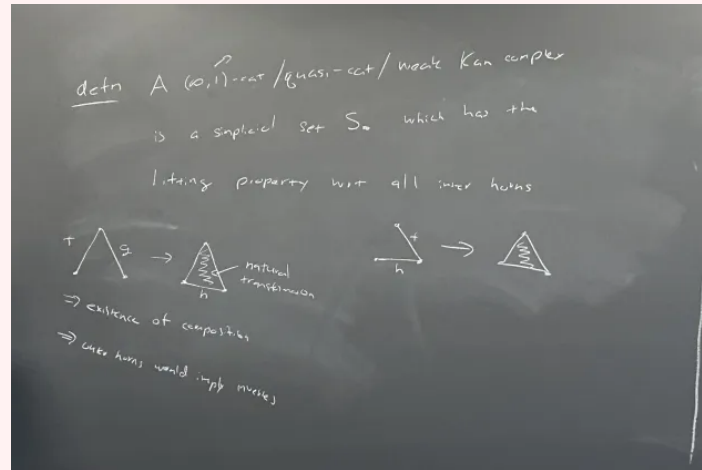 defn A (∞,1)-cat/quasi-cat/weak Kan complex
is a simplicial set S. which has the
lifting property wrt all inner horns
f g → h natural
transformation
f h →
⇒ existence of composition
⇒ outer horns would imply inverses